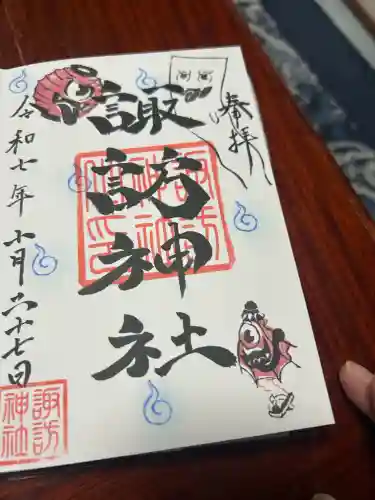 奉拝
諏訪神社
令和七年十月二十七日
諏訪
神社